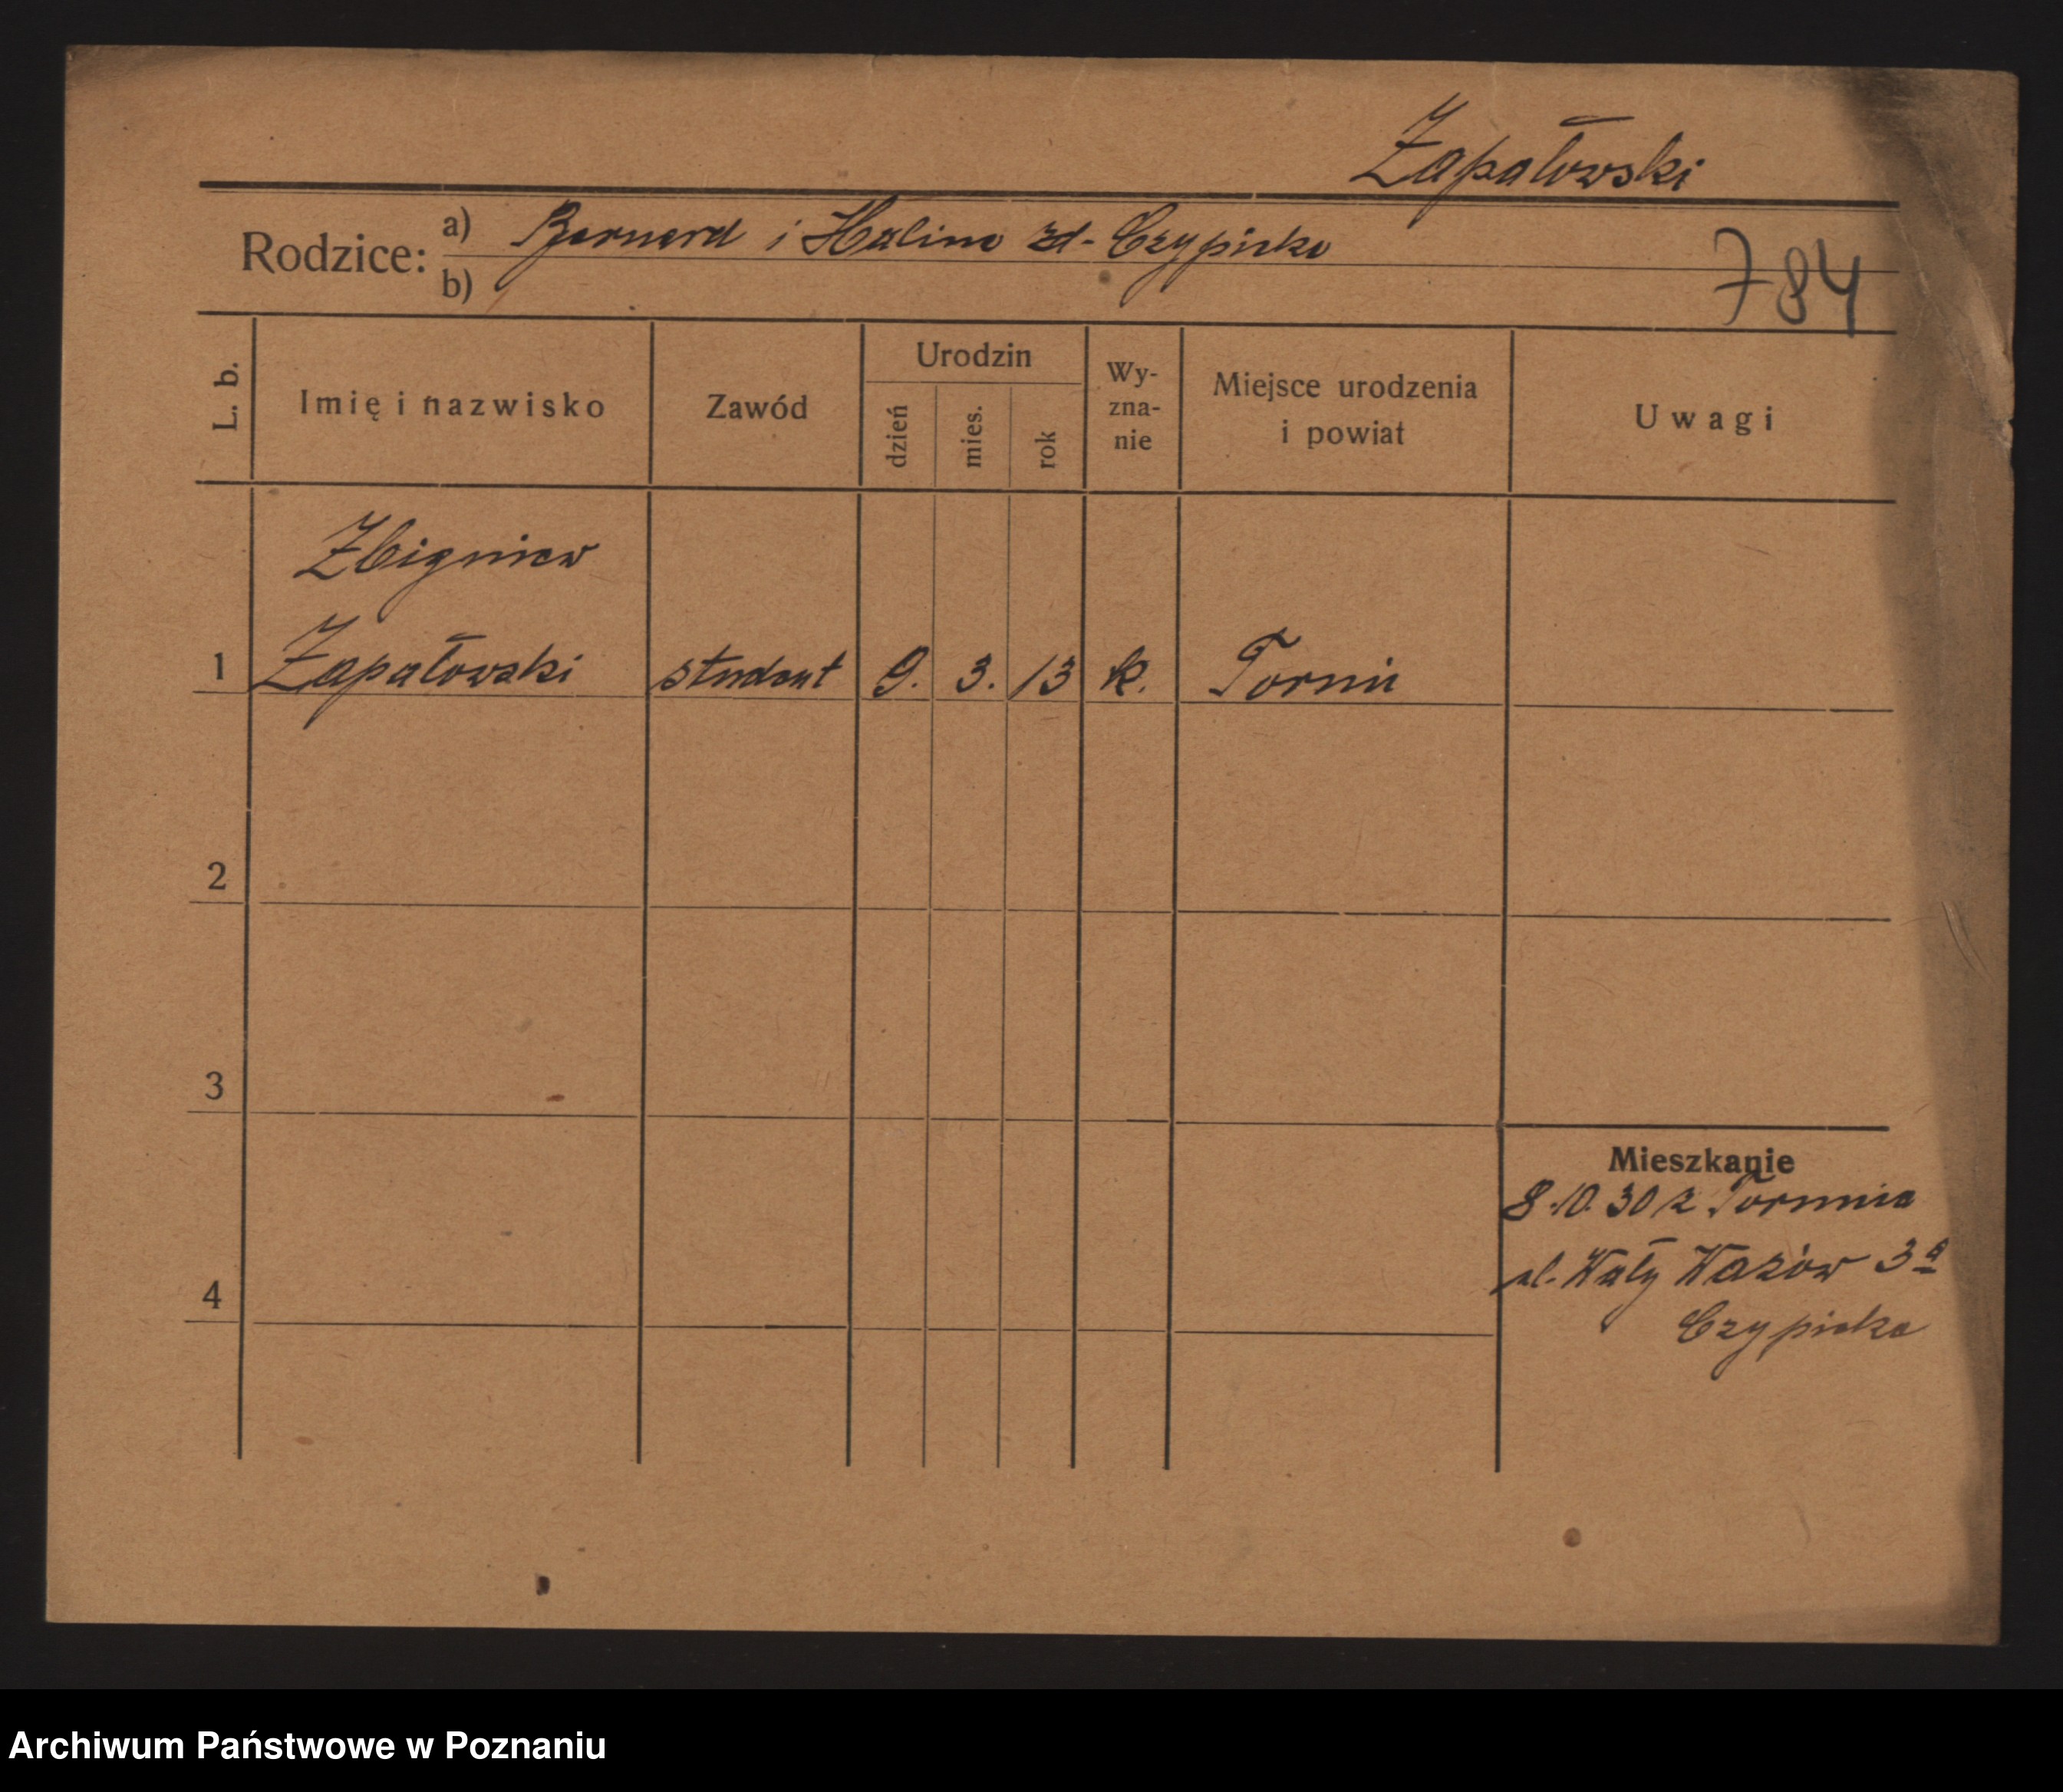 Zapałowski
Rodzice: a) Bernard i Halina zd. Czypicka
b)
784
L. b. Imię i nazwisko Zawód Urodzin dzień mies. rok Wyzna-nie Miejsce urodzenia i powiat Uwagi
Zbigniew
1 Zapałowski student 9. 3. 13 k. Toruń
2
3
Mieszkanie
8.10.30 z Torunia
4 ul. Wały Wazów 3a
Czypicka
Archiwum Państwowe w Poznaniu